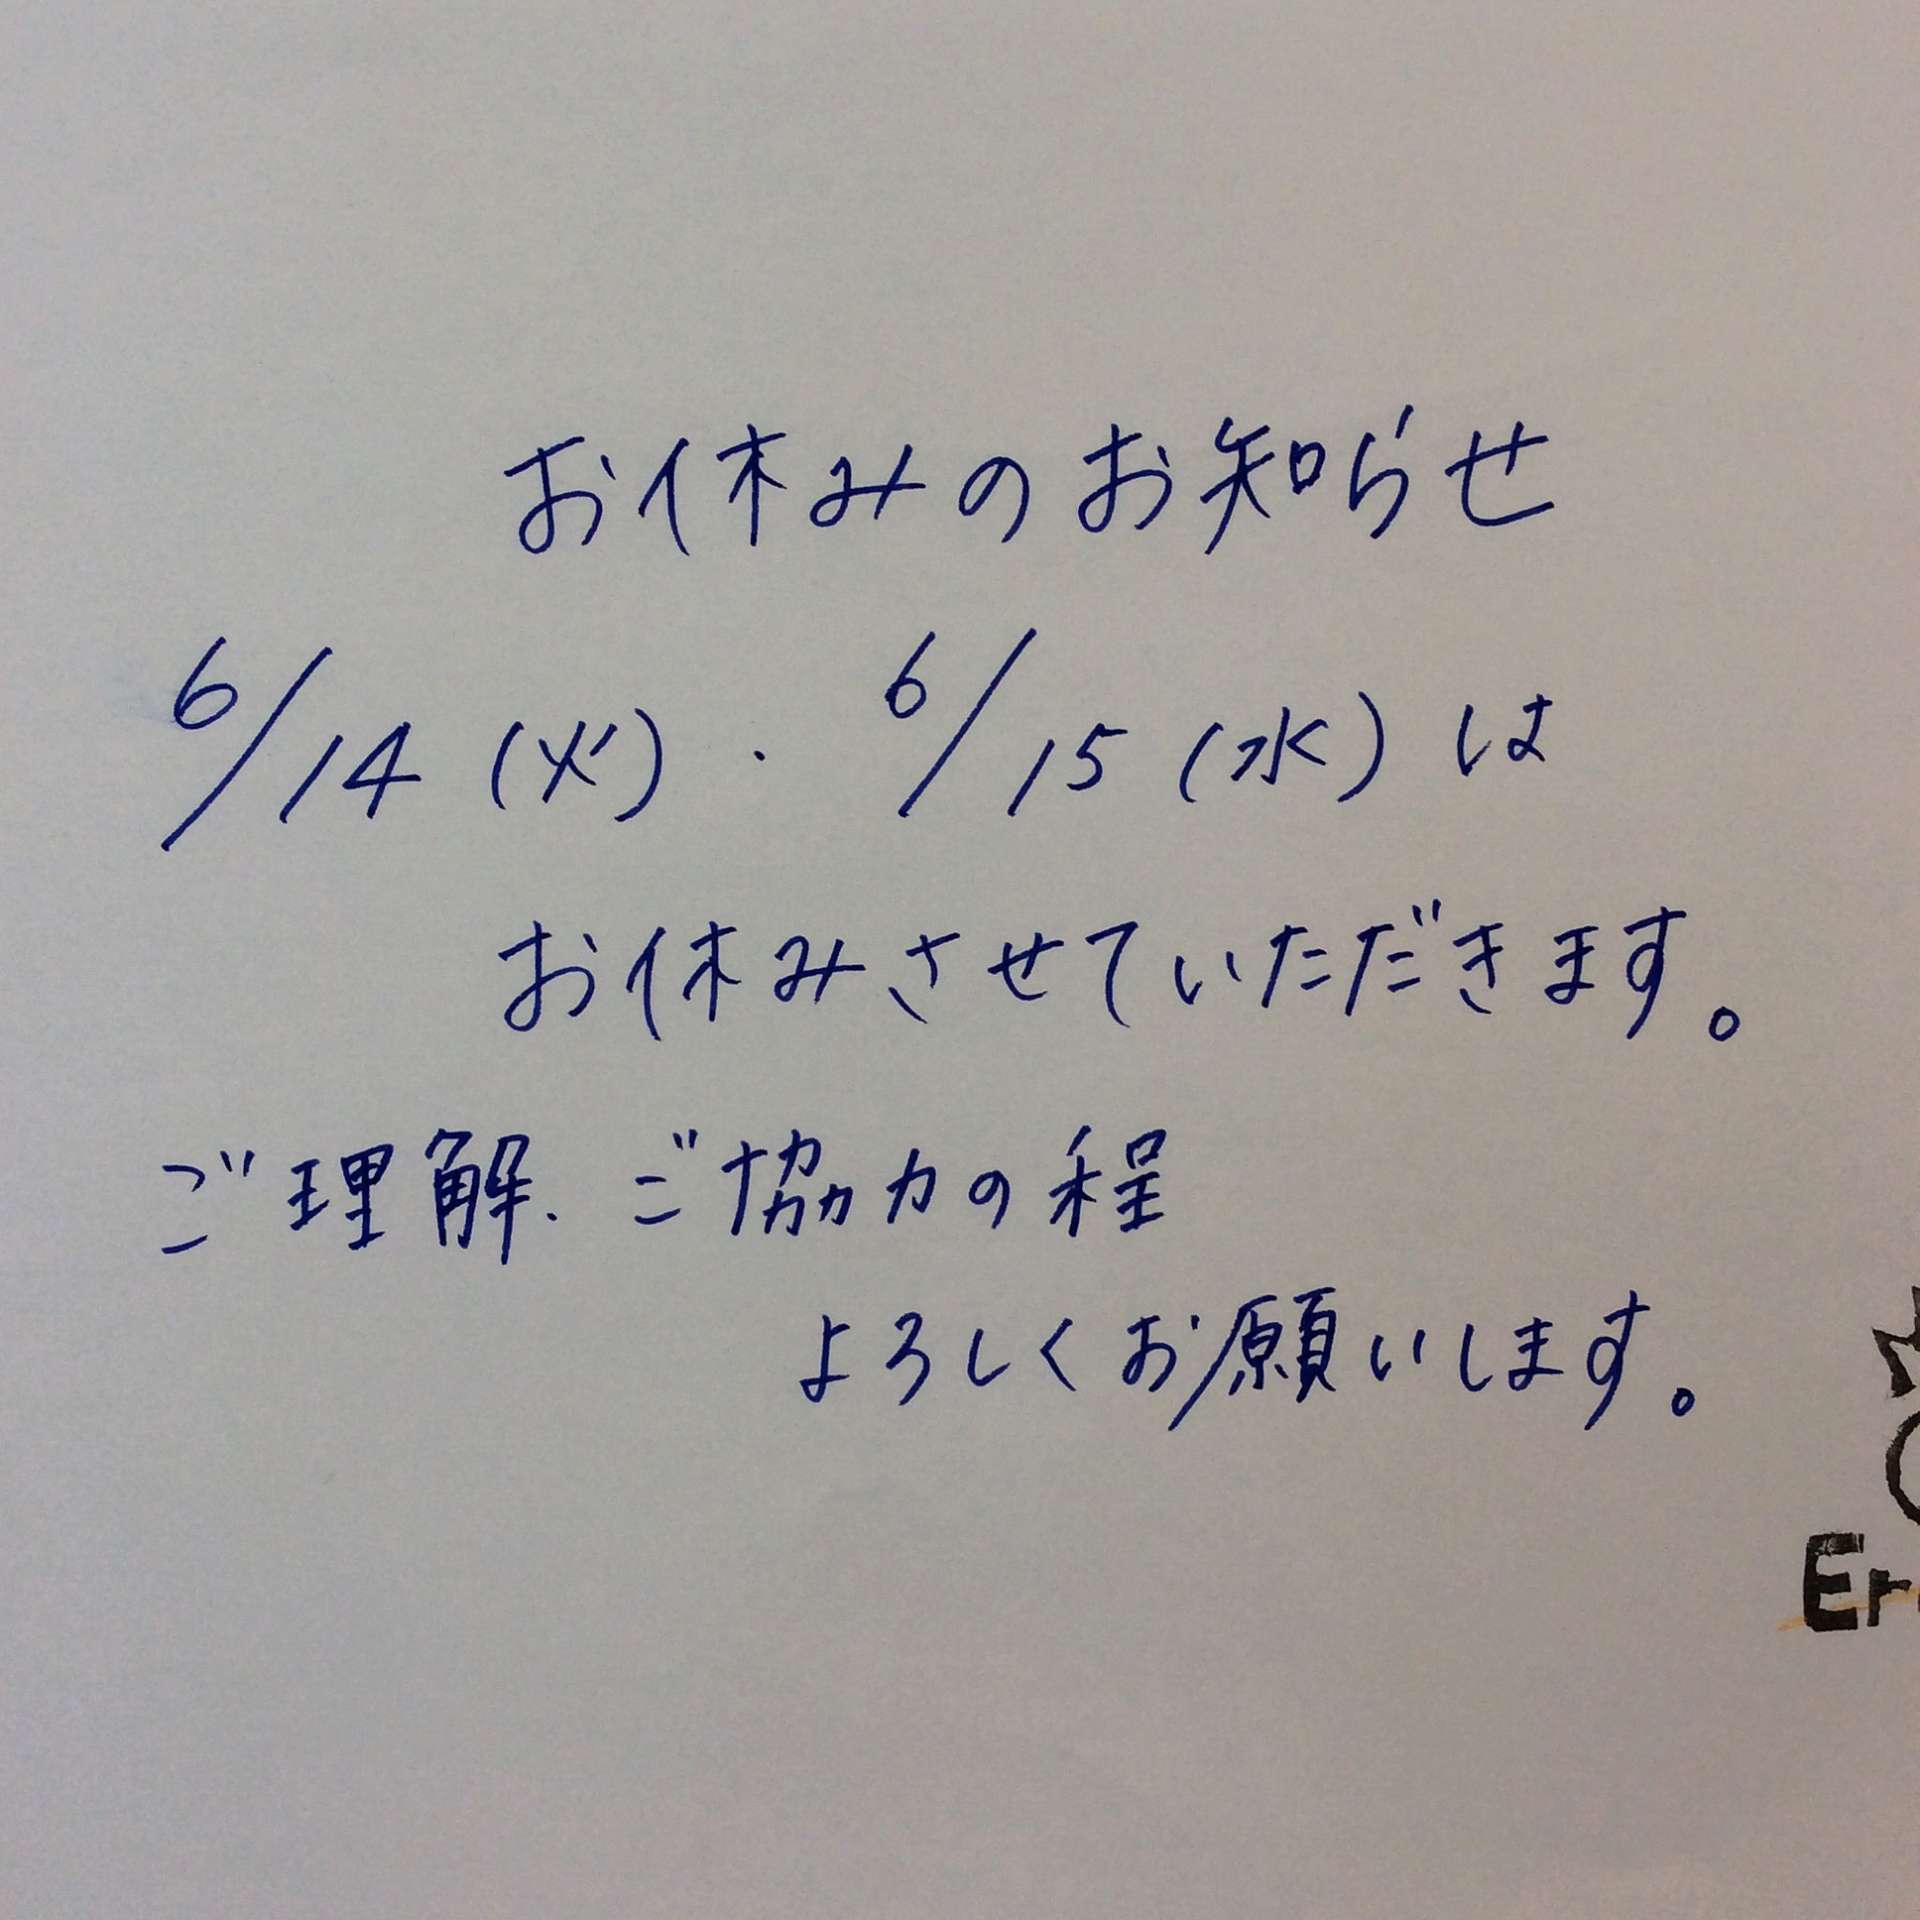 お休みのお知らせ
6/14 (火)・6/15 (水) は
お休みさせていただきます。
ご理解、ご協力の程
よろしくお願いします。